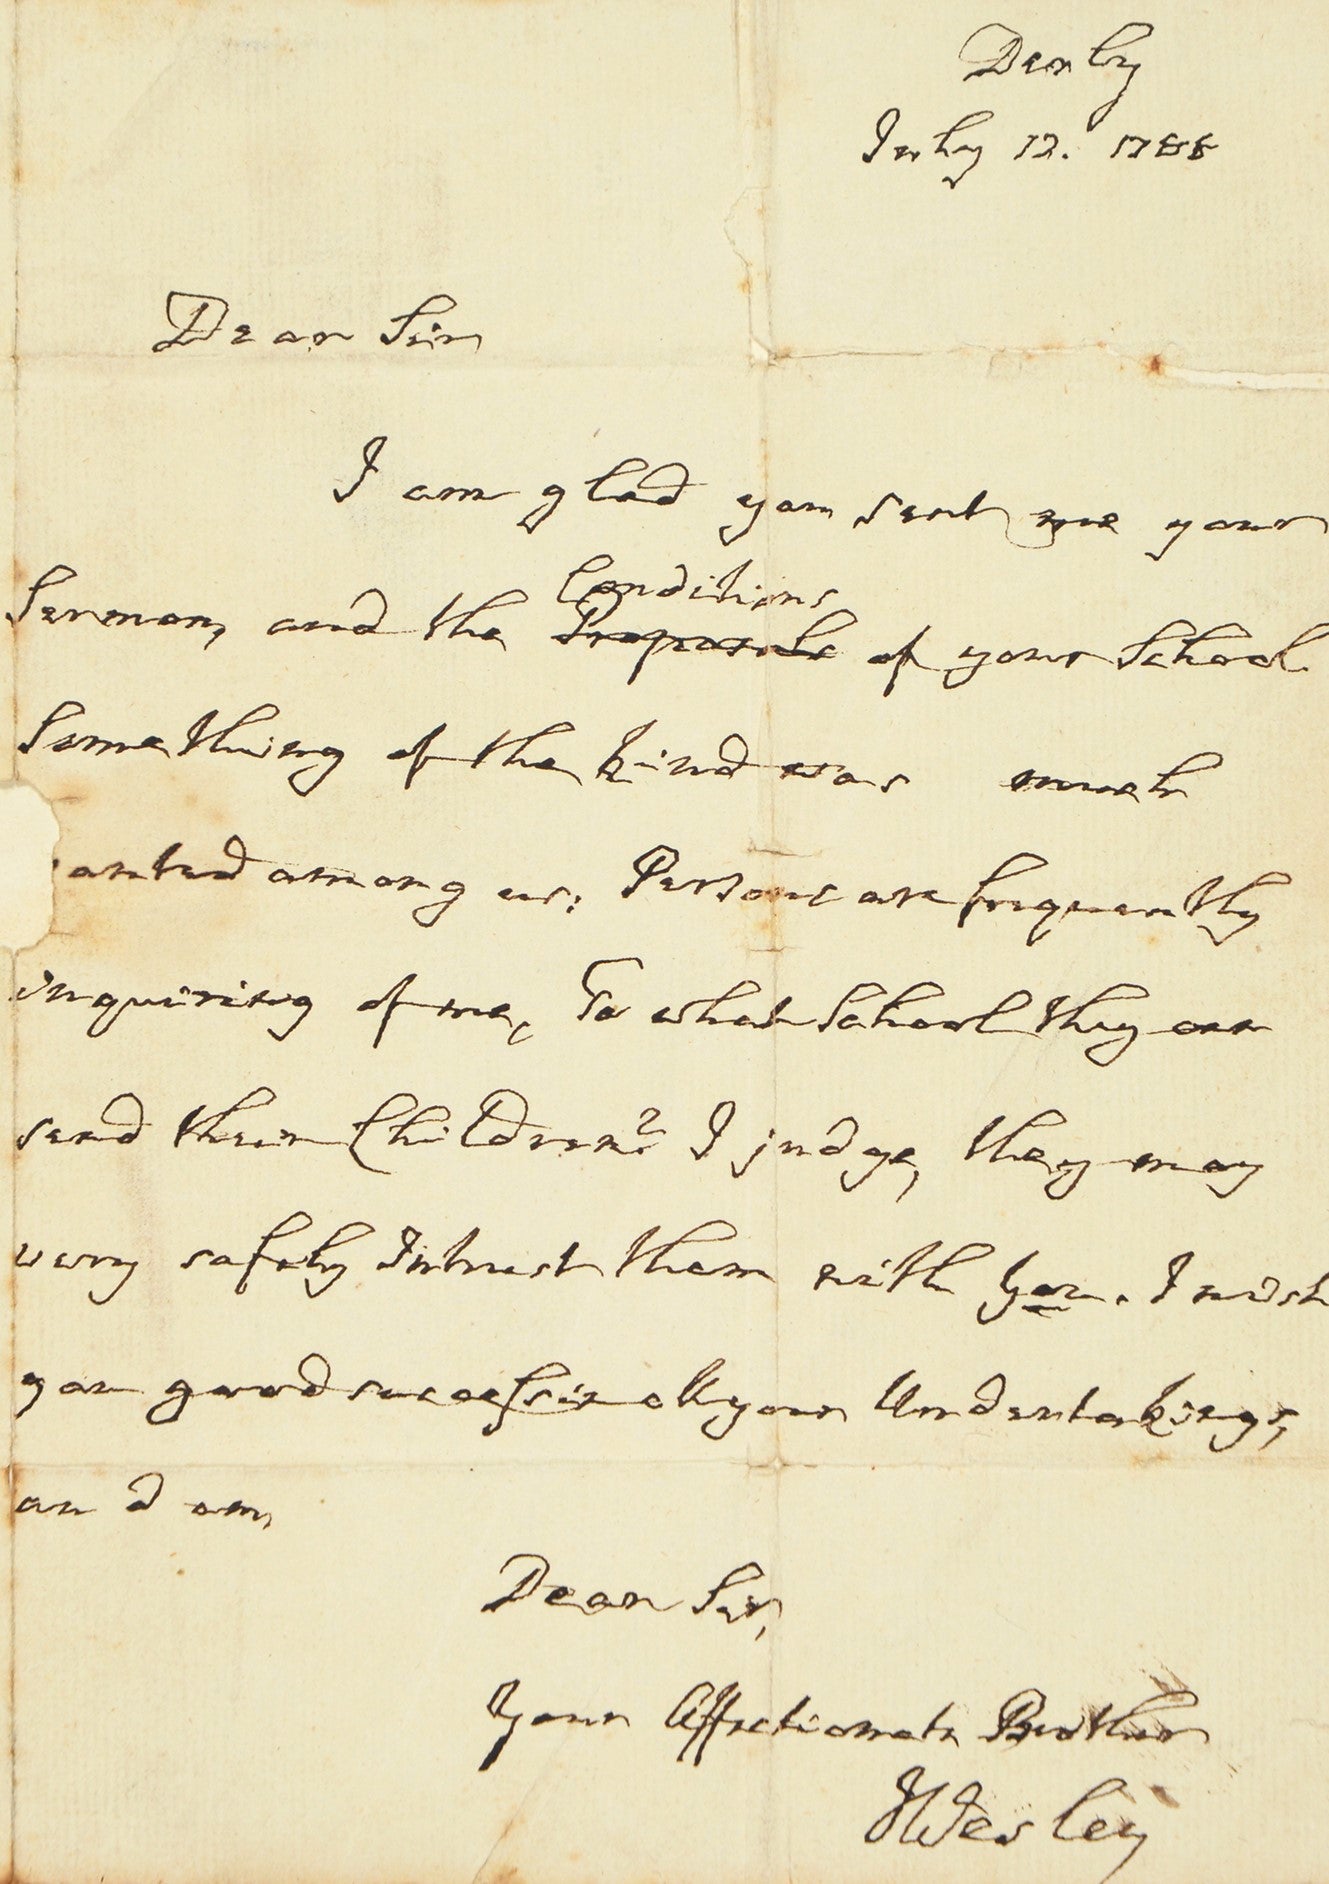 Derby
July 12. 1788
Dear Sir
I am glad you sent me your
Conditions
Sermon, and the Proposals of your School
Something of the kind was much
anted among us: Persons are frequently
inquiring of me, To what School they can
send their Children? I judge, they may
very safely Intrust them with You. I wish
you good success in all your Undertakings,
and am,
Dear Sir,
Your Affectionate Brother
JWesley